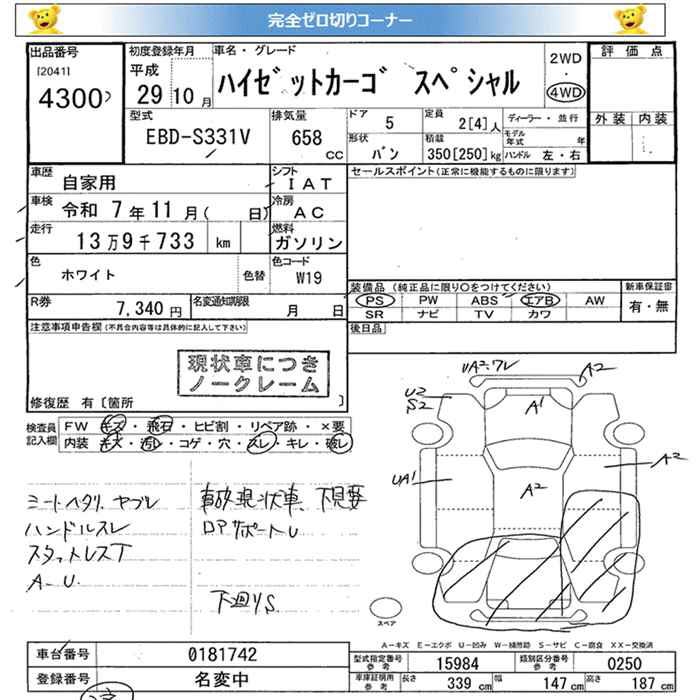 完全ゼロ切りコーナー
出品番号 初度登録年月 車名・グレード 評価点
[2041] 平成 2WD
4300 29 10月 ハイゼットカーゴ スペシャル ・ 4WD
型式 排気量 ドア 5 定員 2[4]人 ディーラー・並行 外装 内装
EBD-S331V 658 cc 形状 バン 積載 350[250]kg モデル年式 年
ハンドル 左・右
車歴 自家用 シフト IAT セールスポイント(正常に機能するものに限ります)
車検 令和 7年 11月( 日) 冷房 AC
走行 13万9千733 km 燃料 ガソリン
色 ホワイト 色替 色コード W19
装備品 (純正品に限り○をつけてください) 新車保証書
PS PW ABS エアB AW 有・無
SR ナビ TV カワ
R券 7,340円 名変通知期限 月 日
後日品
注意事項申告欄(不具合内容等は具体的に記入して下さい)
現状車につき
ノークレーム
修復歴 有〔箇所 〕
検査員記入欄 FW キズ・飛石・ヒビ割・リペア跡・×要
内装 キズ・汚レ・コゲ・穴・スレ・キレ・破レ
UA2.ワレ A2
U2
S2
A1
UA1
A2
A2
シートヘタリ ヤブレ
ハンドルスレ
スタットレスT
A-U.
事故現状車、下見要
ロアサポートU
下廻りS
スペア
A-キズ E-エクボ U-凹み W-補修跡 S-サビ C-腐食 XX-交換済
車台番号 0181742
型式指定番号 参考 15984 類別区分番号 参考 0250
登録番号 名変中
車庫証明用 参考 長さ 339 cm 幅 147 cm 高さ 187 cm